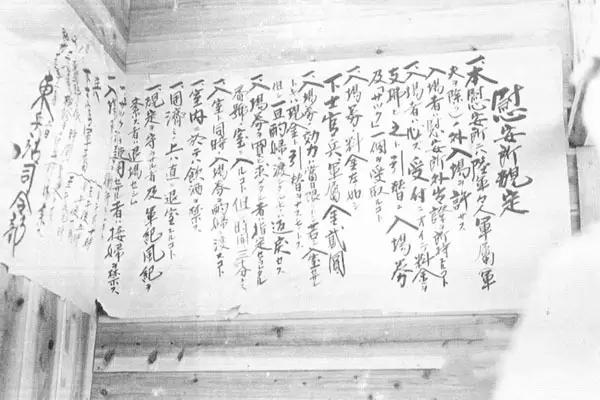 慰安所規定
一、本慰安所ニハ陸軍々人軍属(軍
夫ヲ除ク)ノ外入場ヲ許サス
入場者ハ慰安所外出証ヲ所持スルコト
一、入場者ハ必ス受付ニオイテ料金ヲ
支払ヒ之ト引替ニ入場券
及「サック」一個ヲ受取ルコト
一、入場券ノ料金左ノ如シ
下士官兵軍属金貳圓
一、入場券ノ効力ハ当日限リトシ若シ入室セサル
トキハ現金ト引替ヲナスモノトス
但シ一旦酌婦ニ渡シタルモノハ返戻セス
一、入場券ヲ買ヒ求メタル者ハ指定セラレタル
番号ノ室ニ入ルコト但シ時間ハ三十分トス
一、入室ト同時ニ入場券ヲ酌婦ニ渡スコト
一、室内ニ於テハ飲酒ヲ禁ス
一、用済ミノ上ハ直ニ退室スルコト
一、規定ヲ守ラサル者及軍紀風紀ヲ
紊ス者ハ退場セシム
一、サックヲ使用セサル者ハ接婦ヲ禁ス
東兵站司令部